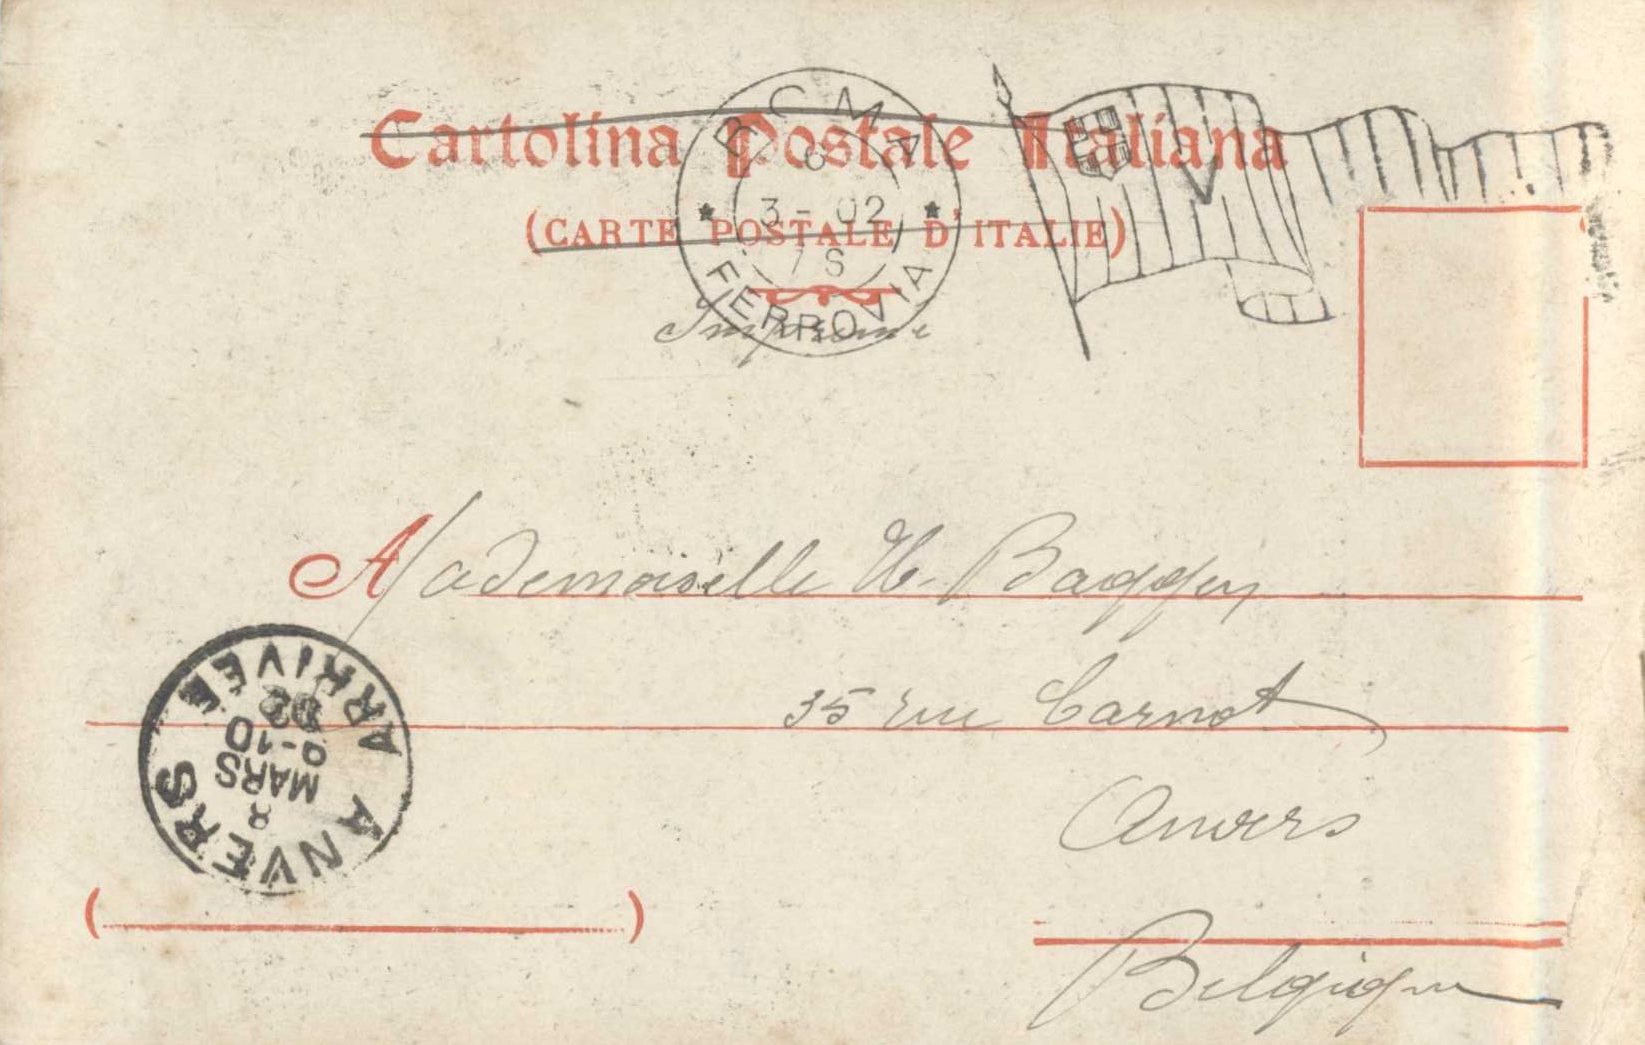 Cartolina Postale Italiana
(CARTE POSTALE D'ITALIE)
ROMA
6
3-02
7S
FERROVIA
V
Imprimé
A Mademoiselle H. Baggen
35 rue Carnot
Anvers
Belgique
ANVERS
8
MARS
9-10
02
ARRIVÉE